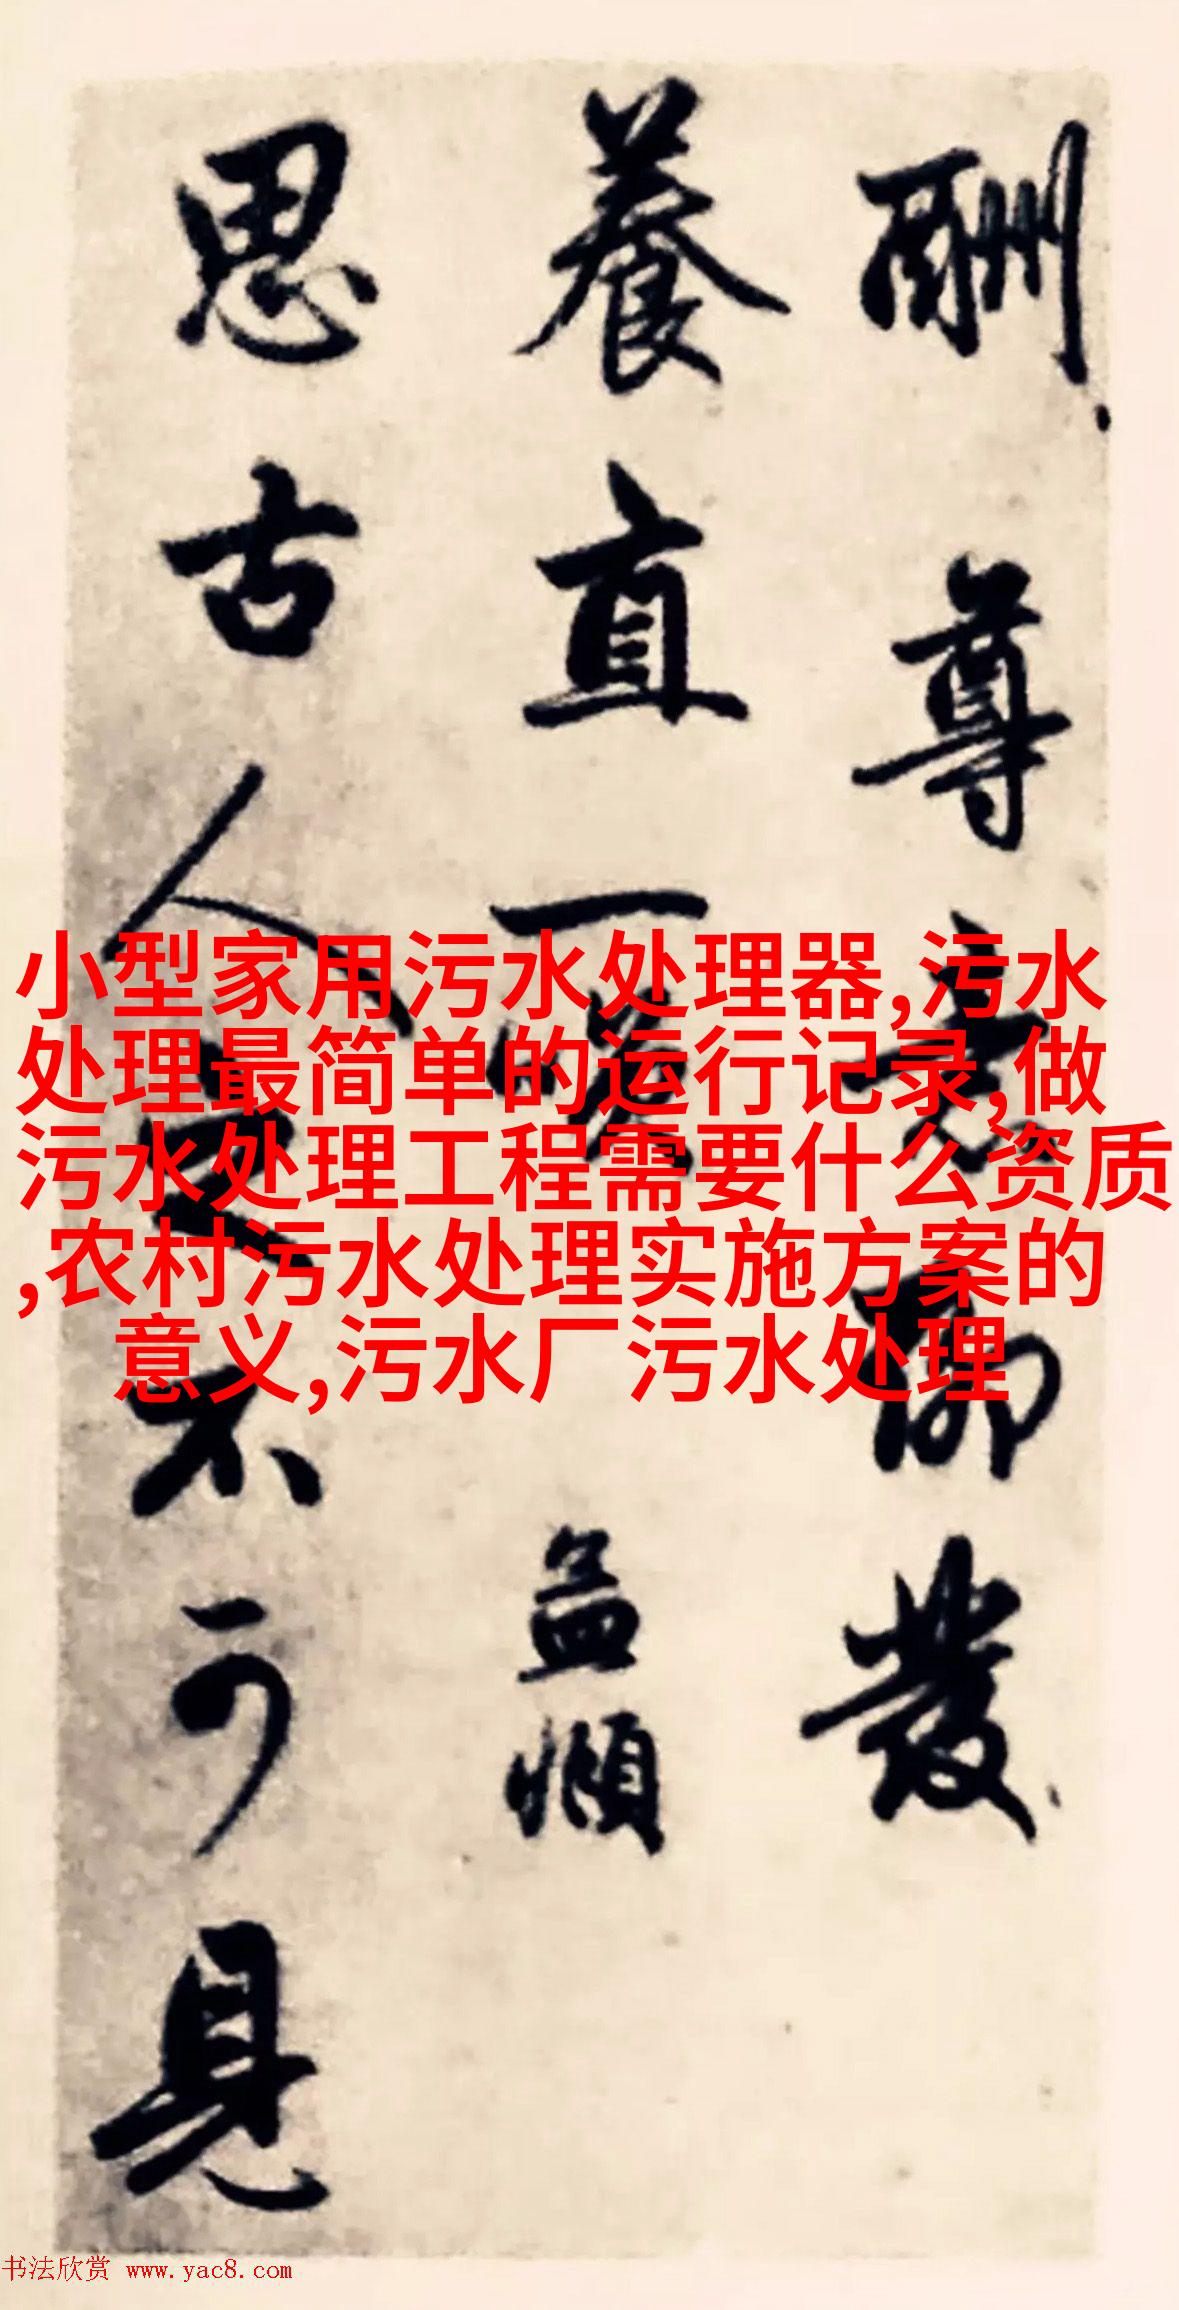 酬尊意聊發
養直一噱
孟頫
思古人而不可見
小型家用污水处理器,污水
处理最简单的运行记录,做
污水处理工程需要什么资质
,农村污水处理实施方案的
意义,污水厂污水处理
书法欣赏 www.yac8.com